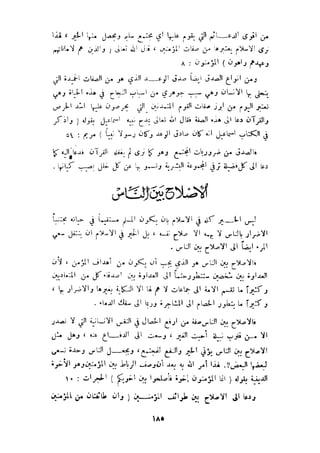 من اقوى الدعــائم التي يقوم عليها اي مجتمع سليم ويحصل منها الخير ، لهذا
نرى الاسلام يعتبرها من صفات المؤمنين ، قال الله تعالى ( والذين هم لأماناتهم
وعهدهم راعون ) المؤمنون : ٨
ومن انواع الصدق ايضاً صدق الوعــد الذي هو من الصفات الحميدة التي
يتحلى بها الانسان وهي سبب جوهري من اسباب النجاح في هذه الحياة وهي
تعتبر اليوم من ابرز صفات القوم المتمدنين التي يحرصون عليها اشد الحرص
والقرآن دعا الى هذه الصفة فقال الله تعالى يمدح نبيه اسماعيل بقوله ( واذكر
في الكتاب اسماعيل انه كان صادق الوعد وكان رسولاً نبياً ) مريم : ٥٤
فالصدق من ضروريات المجتمع وهو كما نرى لم يغفله القرآن فدعا اليه كما
دعا الى كل فضيلة ترقى المجموعة البشرية وتسمو بها من خلال كل نصيب كيانها .
الاصلاح بين الناس
ليس الخــير في ذلك الاسلام بان يكون المسلم مستقيماً في حياته مجتنباً
الاضرار بالناس لا يهمه الا صلاح نفسه ، بل الخير في الاسلام ان ينتقل سعي
المرء ايضاً الى الاصلاح بين الناس .
فالاصلاح بين الناس هو الذي يجب ان يكون من أهداف المؤمن ، لأن
العداوة بين شخصين ستتطور حتماً الى العداوة بين اصدقاء كل من المتعاديين
وكثيراً ما تقسم الامة الى جماعات لا هم لها الا النكاية بغيرها والاضرار بها ،
وكثيراً ما يتطور الخصام الى المشاجرة وربما الى سفك الدماء .
فالاصلاح بين الناس صفة من ارفع الخصال في النفس الانسانية التي لا تصدر
الا من قلوب نبيلة أحبت الغير ، وسعت الى الدفــاع عنه ، وهل مثل
الاصلاح بين الناس يؤتي الخير والنفع للمجتمع ، ويجعــل الناس وحدة تسعى
بعضها لبعض؟ لهذا أمر الله به بعد أن وصف الرباط بين المؤمنين وهو الاخوة
الدينية بقوله ( انما المؤمنون اخوة فأصلحوا بين اخويكم ) الحجرات : ١٠
ودعا الى الاصلاح بين طوائف المؤمنــين ( وان طائفتان من المؤمنين
١٨٥